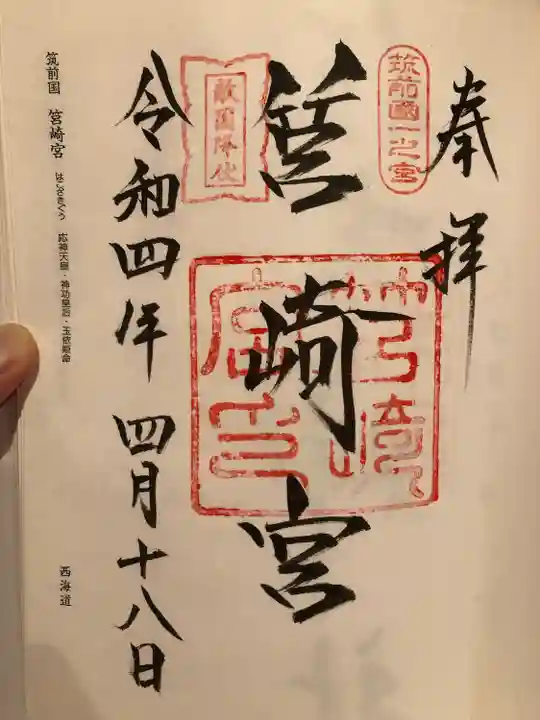 奉拝
筑前國一之宮
筥崎宮
筥崎宮印
敵国降伏
令和四年四月十八日
筑前国 筥崎宮 はこざきぐう 応神天皇・神功皇后・玉依姫命
西海道